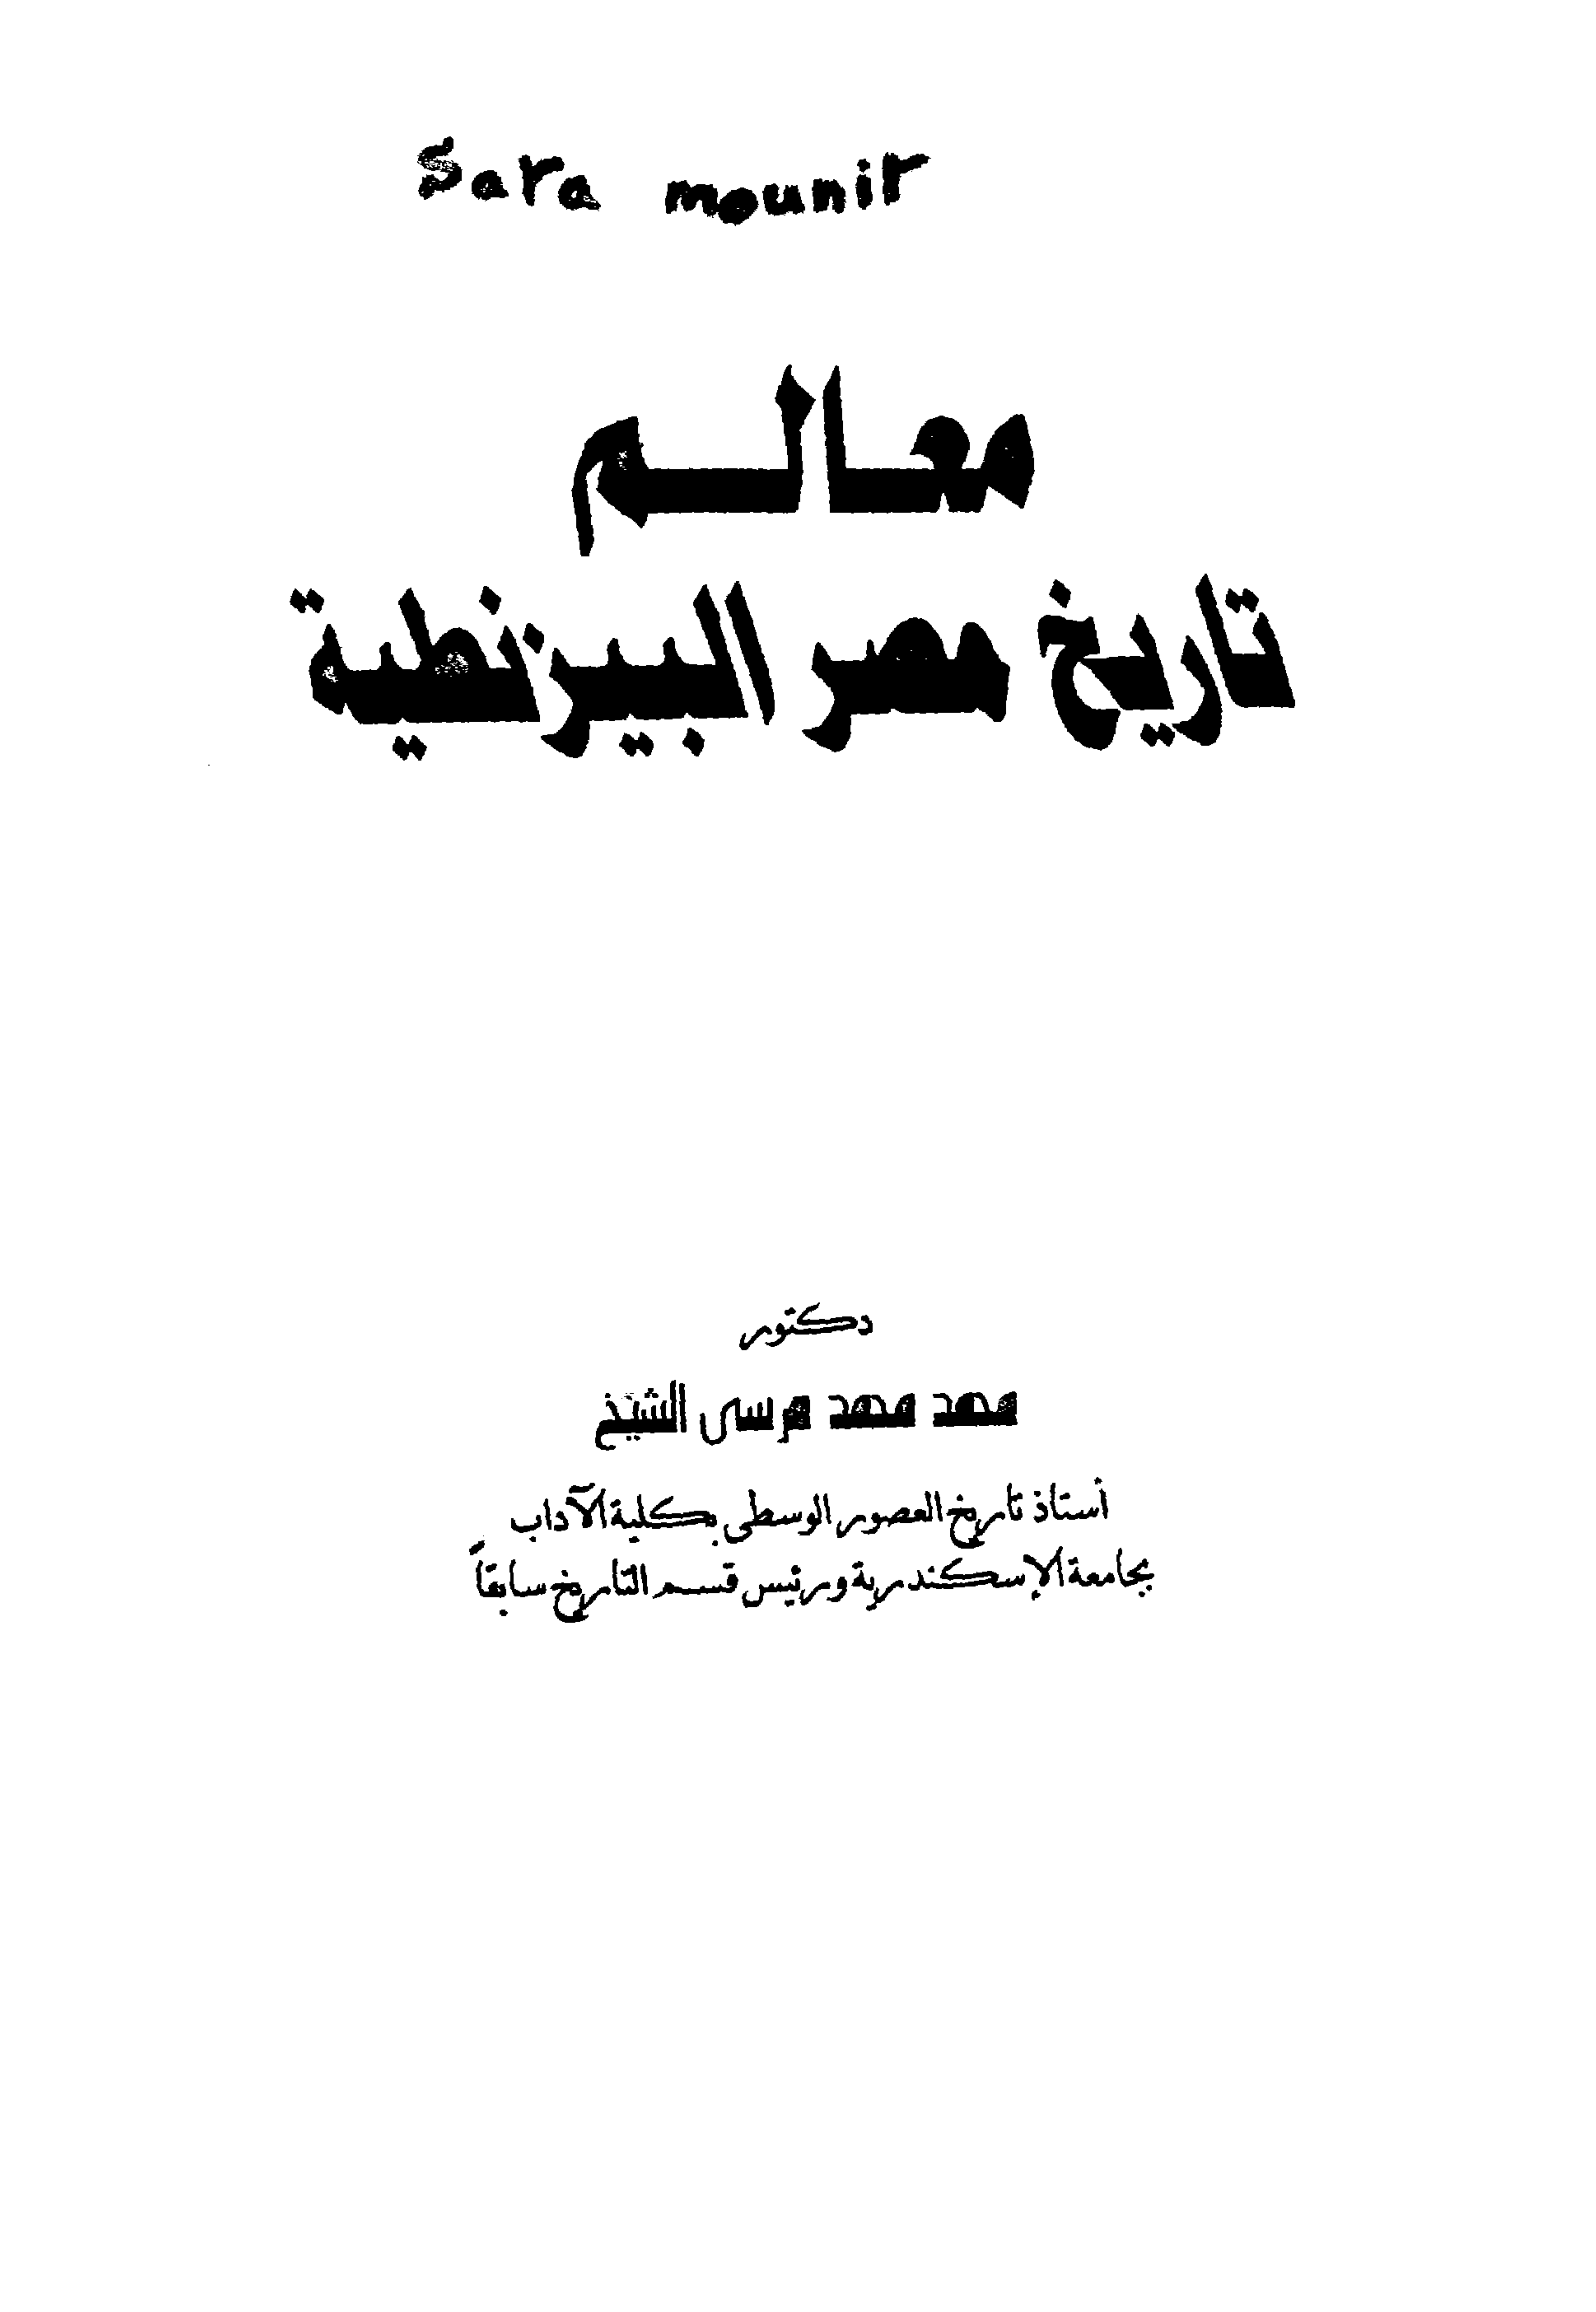 Sara mounir
معالـم
تاريخ مصر البيزنطية
دكتور
محمد محمد مرسى الشيخ
أستاذ تاريخ العصور الوسطى بكلية الآداب
بجامعة الإسكندرية ورئيس قسم التاريخ سابقاً